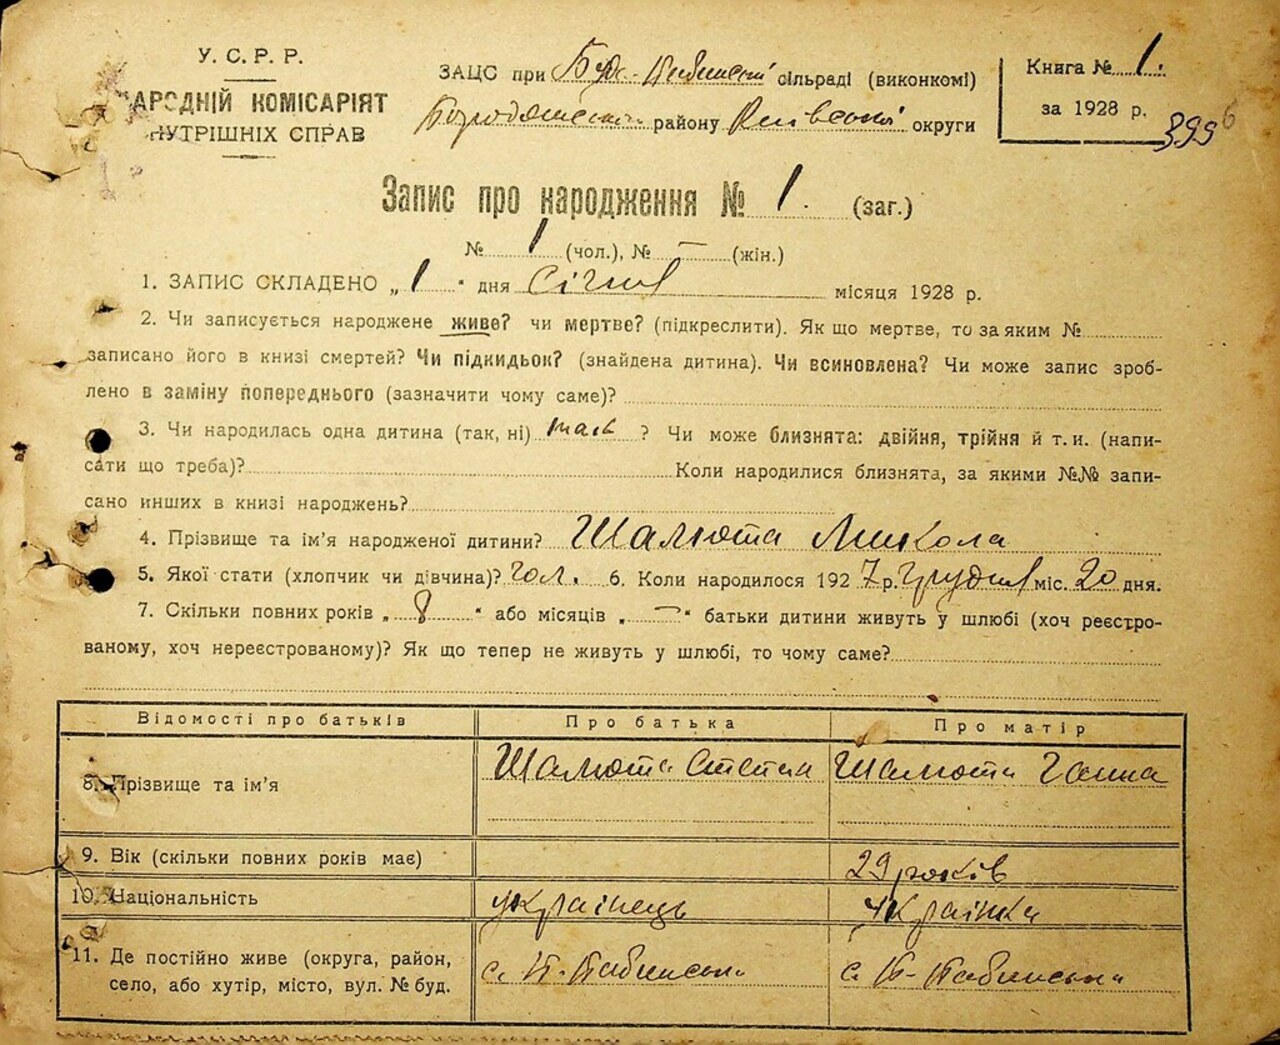 У. С. Р. Р.
НАРОДНІЙ КОМІСАРІЯТ
ВНУТРІШНІХ СПРАВ
ЗАЦС при Буда-Бабинській сільраді (виконкомі)
Бородянськ. району Київської округи
Книга № 1.
за 1928 р.
Запис про народження № 1. (заг.)
№ 1 (чол.), № — (жін.)
1. ЗАПИС СКЛАДЕНО „1“ дня Січня місяця 1928 р.
2. Чи записується народжене живе? чи мертве? (підкреслити). Як що мертве, то за яким №
записано його в книзі смертей? Чи підкидьок? (знайдена дитина). Чи всиновлена? Чи може запис зроб-
лено в заміну попереднього (зазначити чому саме)?
3. Чи народилась одна дитина (так, ні) так ? Чи може близнята: двійня, трійня й т. и. (напи-
сати що треба)? Коли народилися близнята, за якими №№ запи-
сано инших в книзі народжень?
4. Прізвище та ім'я народженої дитини? Шалюта Микола
5. Якої стати (хлопчик чи дівчина)? чол. 6. Коли народилося 1927 р. грудня міс. 20 дня.
7. Скільки повних років „8“ або місяців „—“ батьки дитини живуть у шлюбі (хоч реєстро-
ваному, хоч нереєстрованому)? Як що тепер не живуть у шлюбі, то чому саме?
Відомості про батьків Про батька Про матір
8. Прізвище та ім'я Шалюта Степан Шалюта Ганна
9. Вік (скільки повних років має) 29 років
10. Національність українець українка
11. Де постійно живе (округа, район,
село, або хутір, місто, вул. № буд.